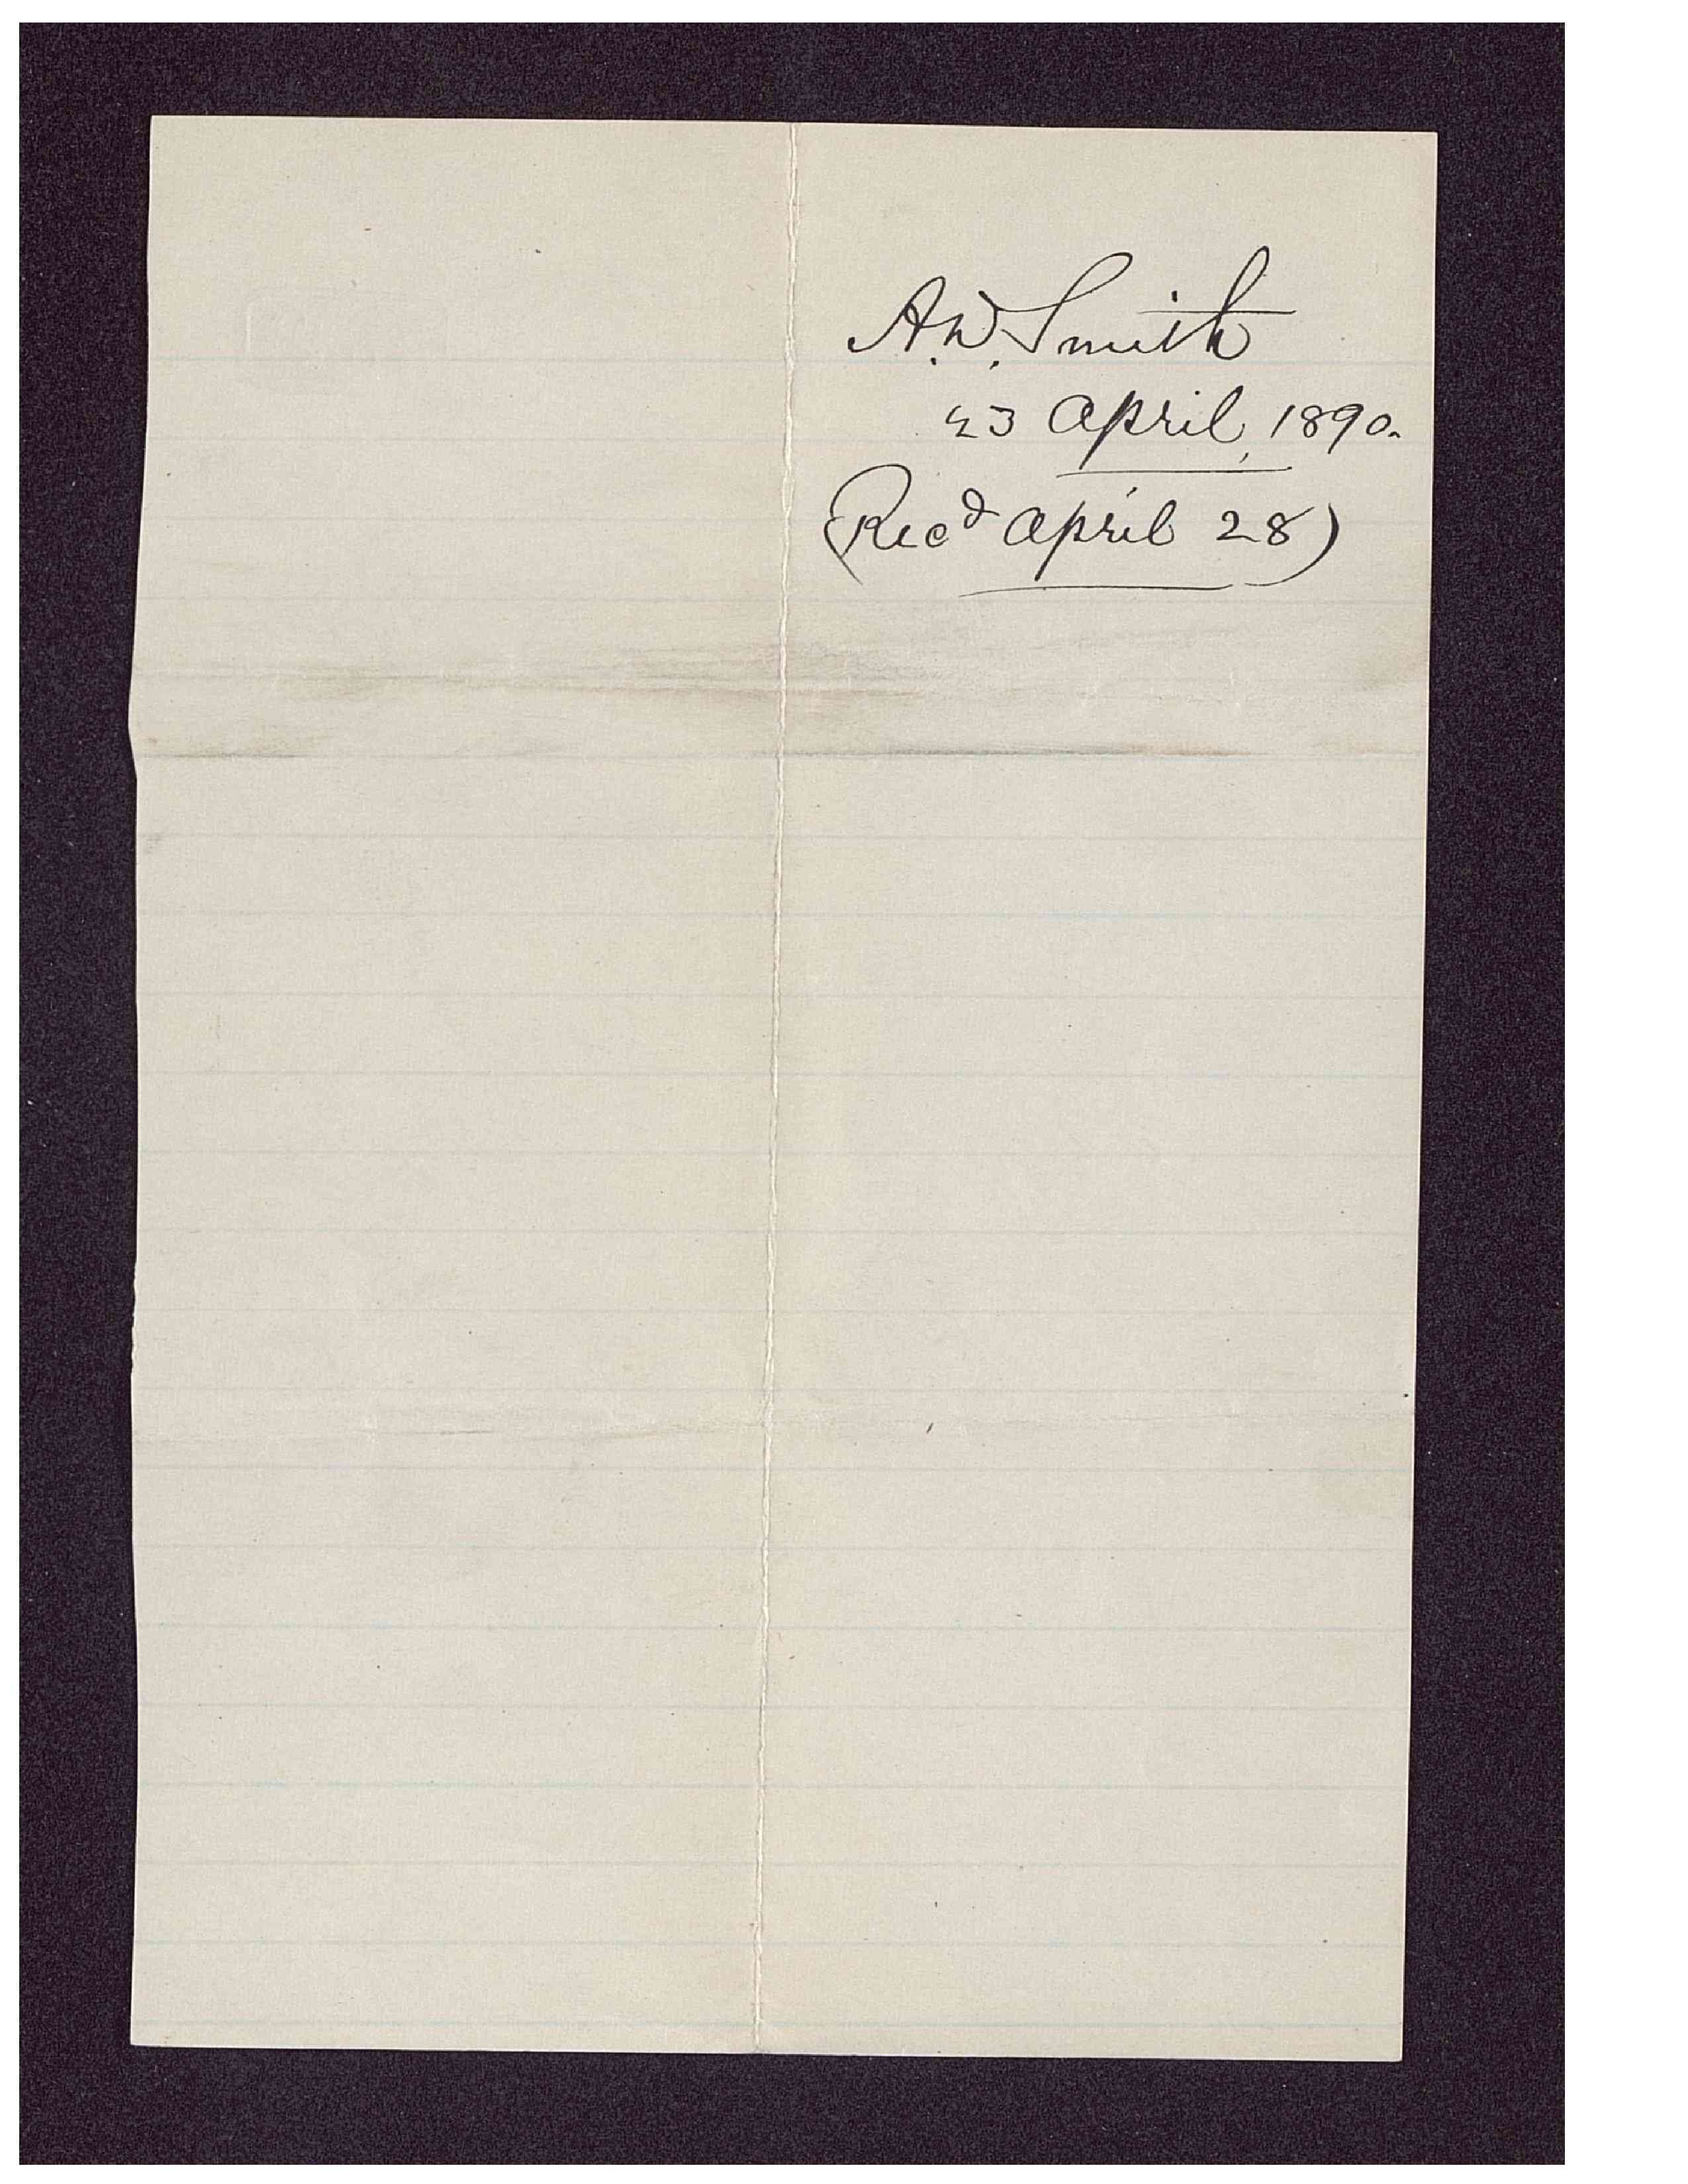 A. W. Smith
23 April, 1890.
(Recd April 28)